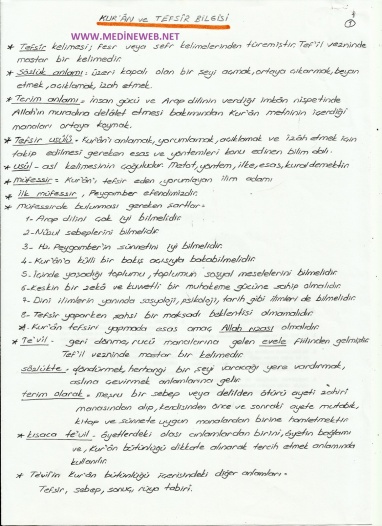 KUR'ÂN ve TEFSİR BİLGİSİ
1
WWW.MEDİNEWEB.NET
* Tefsir kelimesi; fesr veya sefr kelimelerinden türemiştir. Tef'il vezninde
mastar bir kelimedir.
* Sözlük anlamı: üzeri kapalı olan bir şeyi açmak, ortaya çıkarmak, beyan
etmek, açıklamak, izah etmek.
* Terim anlamı = İnsan gücü ve Arap dilinin verdiği imkân nispetinde
Allah'ın muradına delâlet etmesi bakımından Kur'ân metninin içerdiği
manâları ortaya koymak.
* Tefsir usûlü = Kur'ân'ı anlamak, yorumlamak, açıklamak ve izâh etmek için
takip edilmesi gereken esas ve yöntemleri konu edinen bilim dalı.
* usûl = asl kelimesinin çoğuludur. Metot, yöntem, ilke, esas, kural demektir.
* müfessir = Kur'ân'ı tefsir eden, yorumlayan ilim adamı
* ilk müfessir, Peygamber efendimizdir.
* müfessirde bulunması gereken şartlar =
1- Arap dilini çok iyi bilmelidir.
2- Nüzul sebeplerini bilmelidir.
3- Hz. Peygamber'in sünnetini iyi bilmelidir.
4- Kur'ân'a külli bir bakış açısıyla bakabilmelidir.
5- İçinde yaşadığı toplumu, toplumun sosyal meselelerini bilmelidir.
6- Keskin bir zekâ ve kuvvetli bir muhakeme gücüne sahip olmalıdır.
7- Dini ilimlerin yanında sosyoloji, psikoloji, tarih gibi ilimleri de bilmelidir.
8- Tefsir yaparken şahsi bir maksadı beklentisi olmamalıdır.
*. Kur'ân tefsiri yapmada esas amaç Allah rızası olmalıdır.
* Te'vil = geri dönme, rücu manalarına gelen evele fiilinden gelmiştir.
Tef'il vezninde mastar bir kelimedir.
sözlükte = döndürmek, herhangi bir şeyi varacağı yere vardırmak,
aslına çevirmek anlamlarına gelir.
terim olarak = Meşru bir sebep veya delilden ötürü ayeti zâhiri
manasından alıp, kendisinden önce ve sonraki ayete mutabık,
kitap ve sünnete uygun manalardan birine hamletmektir.
* kısaca te'vil = âyetlerdeki olası anlamlardan birini, âyetin bağlamı
ve, Kur'ân bütünlüğü dikkate alınarak tercih etmek anlamında
kullanılır.
* Te'vil'in Kur'ân bütünlüğü içerisindeki diğer anlamları =
Tefsir, sebep, sonuç, rüya tabiri.